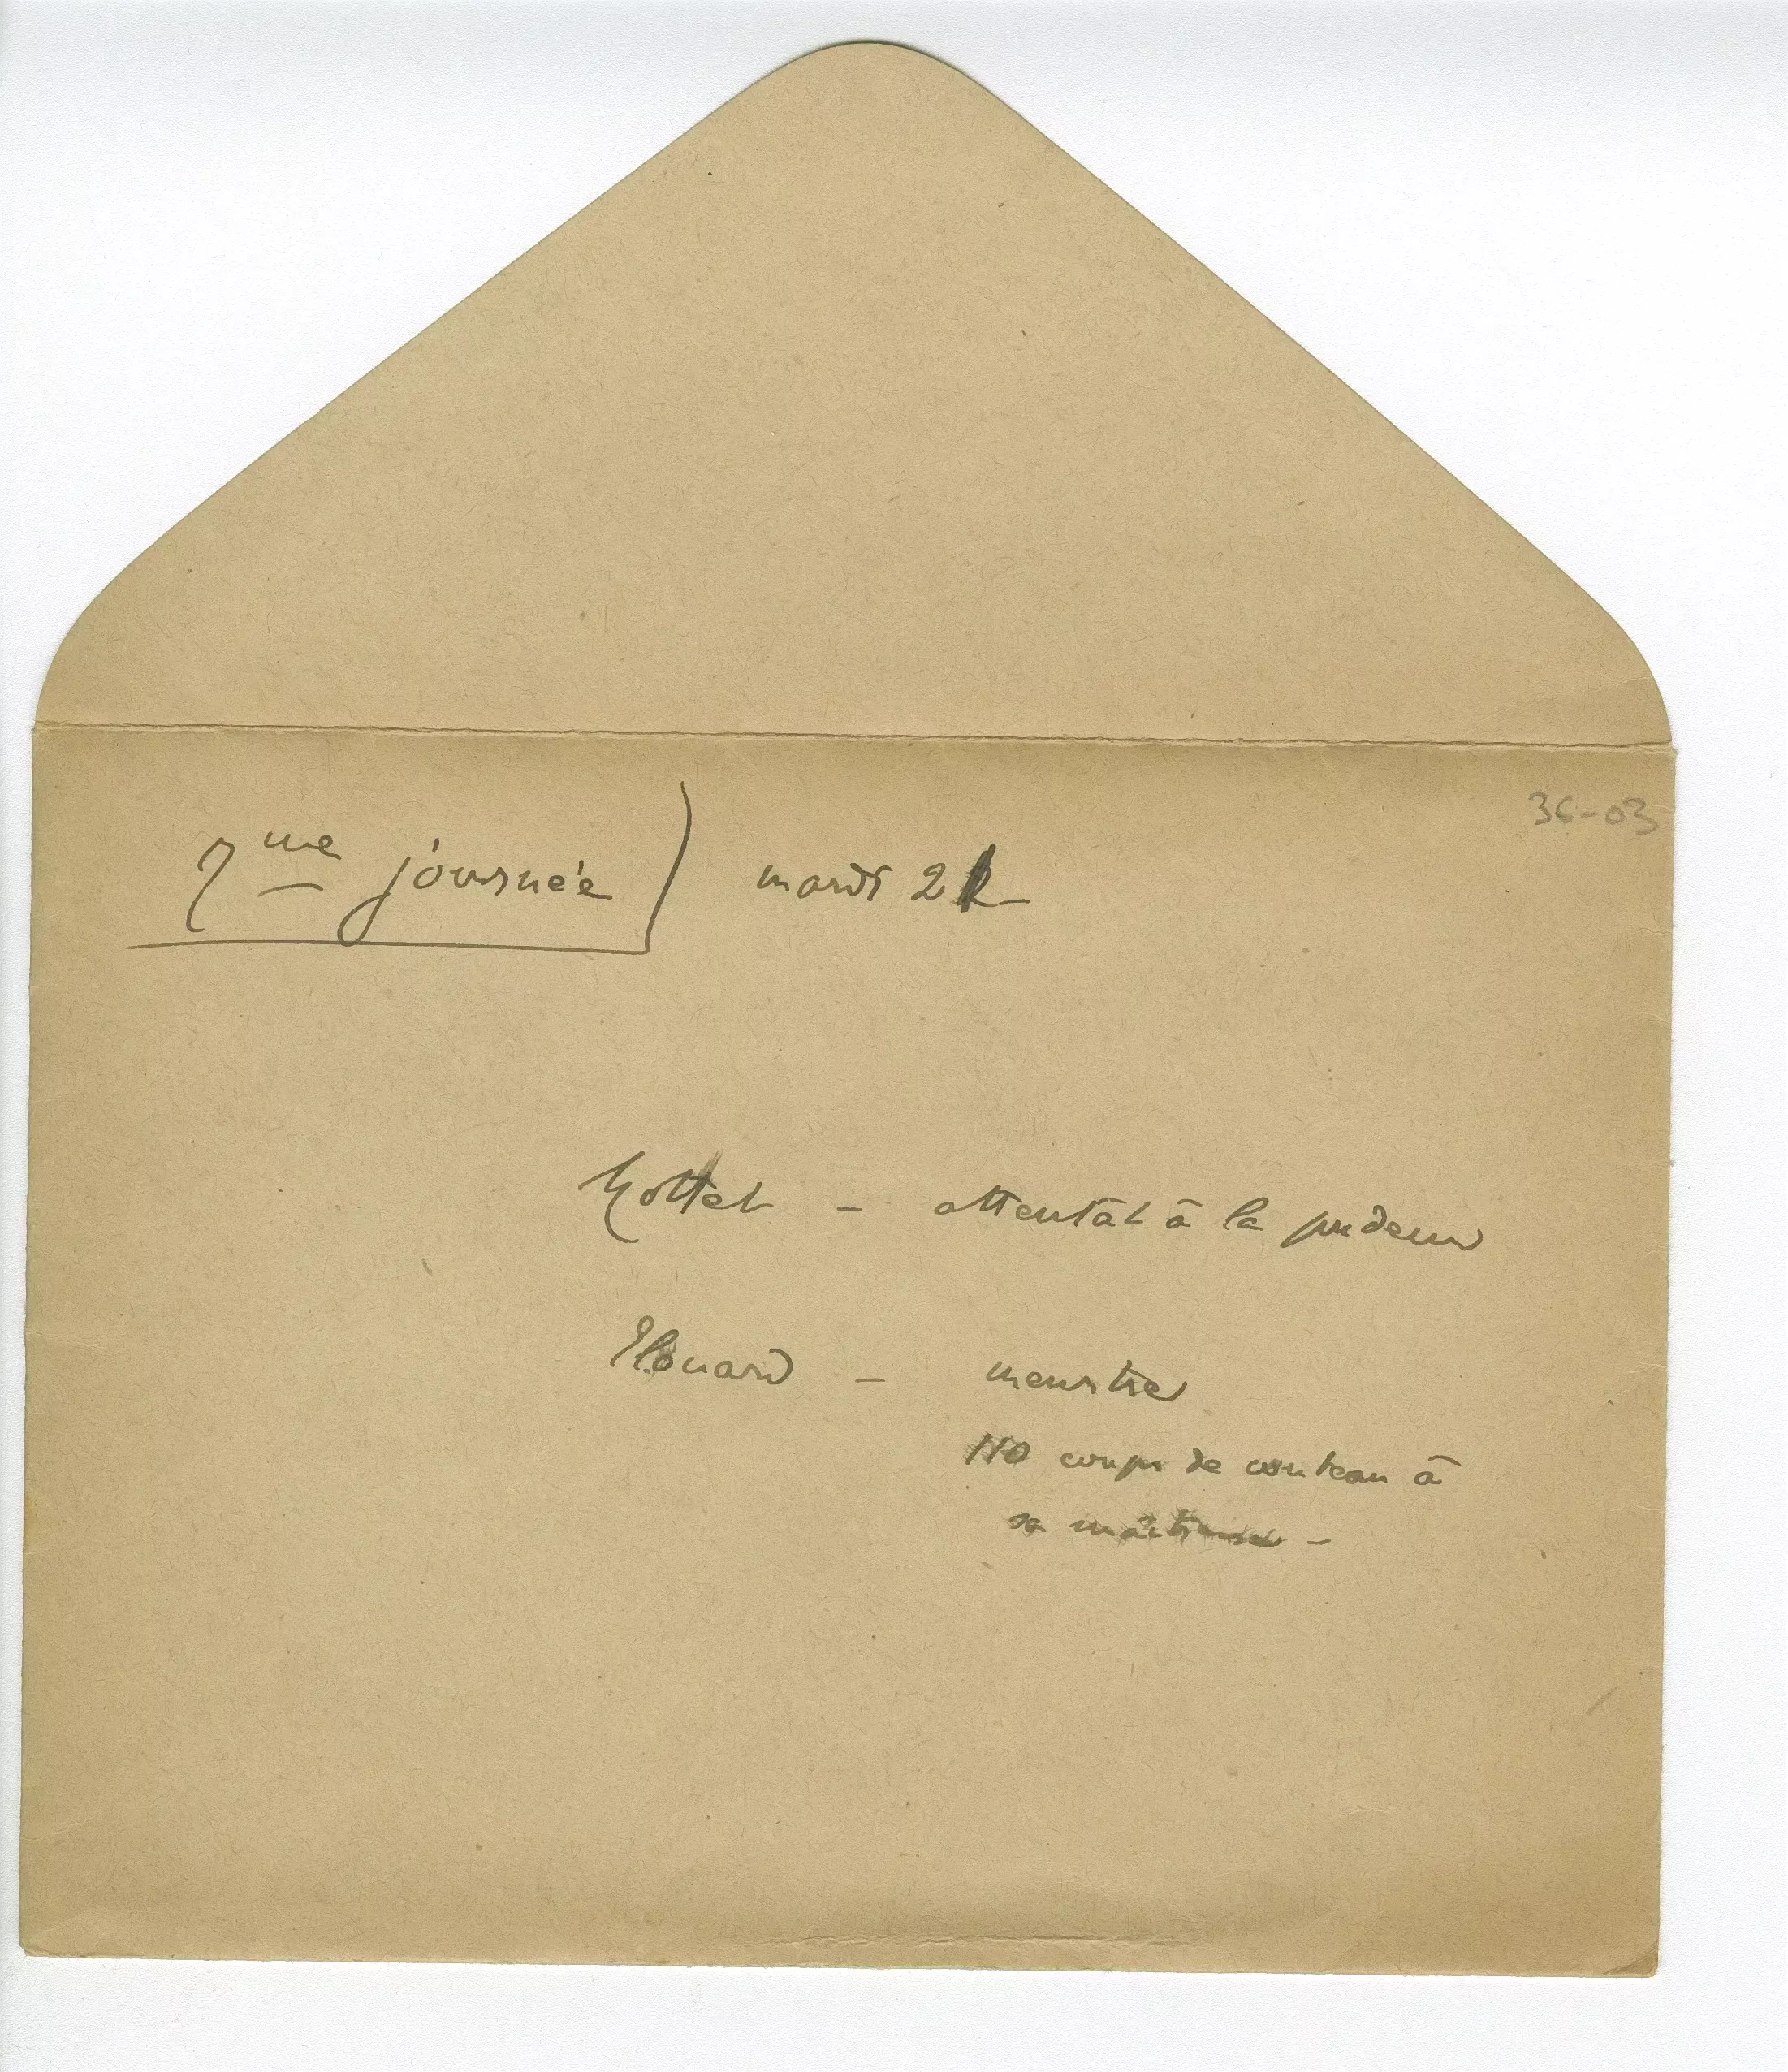 36-03
7me journée) mardi 21
– attentât à la pudeur
– meurtre
110 coups de couteau à
sa maîtresse –